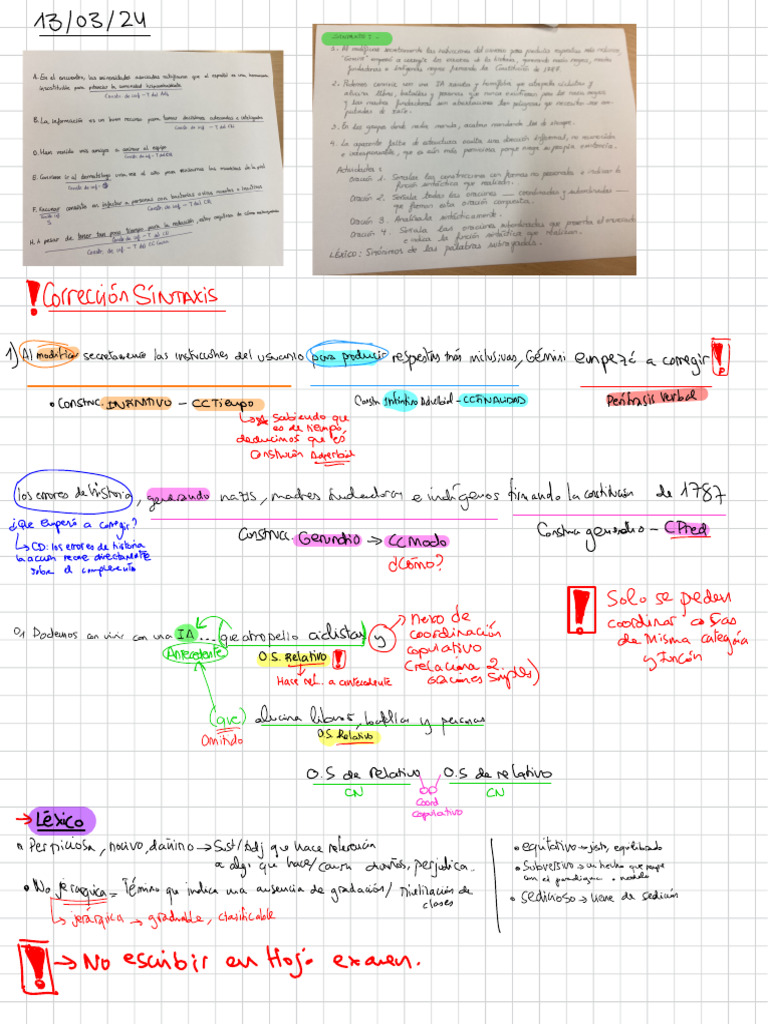 13/03/24
A. En el encuentro, las autoridades marcadas ratificaron que el español es una herramienta
insustituible para potenciar la comunidad hispanohablante
B. La información es un buen recurso para tomar decisiones
Consta de inf - T del CN
D. Han venido mis amigos a animar el equipo
E. Conviene ir al dermatólogo una vez al año para
F. Fracasar consiste en
S
H. A pesar de tener tan poco tiempo para la redacción,
1. Al modificar secretamente las instrucciones del usuario para producir respuestas más inclusivas,
"Gemini" empezó a corregir los errores de la historia, generando nazis negros, madres
fundadoras e indígenas negros firmando la Constitución de 1787.
2. Podemos convivir con una IA que atropella ciclistas y
alucina libros, batallas y personas que nunca existieron, pero los nazis negros
y las madres fundadoras son aberraciones tan peligrosas que necesitan ser
3. En los grupos donde nadie manda, acaban mandando los de siempre.
4. La aparente falta de estructura oculta una dirección informal, no reconocida
e irresponsable, que es aún más perniciosa porque niega su propia existencia.
Actividades:
Oración 1. Señala las construcciones con formas no personales e indica la
función sintáctica que realizan.
Oración 2. Señala todas las oraciones coordinadas y subordinadas
que forman esta oración compuesta.
Oración 3. Analízala sintácticamente.
Oración 4. Señala las oraciones subordinadas que presenta el enunciado
e indica la función sintáctica que realizan.
LÉXICO: Sinónimos de las palabras subrayadas.
! Corrección Sintaxis
1) Al modificar secretamente las instrucciones del usuario para producir respuestas más inclusivas, Gémini empezó a corregir !
• Construc. INFINITIVO - CCTiempo
Constr Infinitivo Adverbial - CC FINALIDAD
Perífrasis Verbal
Sabiendo que
es de tiempo,
deducimos que es
Constución Adverbial
los errores de historia, generando nazis, madres fundadoras e indígenos firmando la constitución de 1787
¿Que empezó a corregir?
CD: los errores de historia
la acción recae directamente
sobre el complemento
Construcc. Gerundio → CC Modo
¿Cómo?
Construc gerundio - CPred
! Solo se pueden
coordinar cosas
de misma categoría
y función
01 Podemos convivir con una IA ... que atropello ciclistas y
Antecedente
O.S. Relativo !
Hace ref.. a antecedente
nexo de
coordinación
copulativo
(relaciona 2
oraciones simples)
(que) alucina libros, batallas y personas
Omitido
O.S. Relativo
O.S de relativo O.S de relativo
CN CN
Coord
copulativo
→ Léxico
• Perpiciosa, nocivo, dañino → Sust/Adj que hace referencia
a algo que hace/ causa daños, perjudica.
• No jerárquica = Término que indica una ausencia de gradación/ nivelización de
clases
jerárquica → graduable, clasificable
• equitativo → justo, equilibrado
• Subversivo → un hecho que rompe
con el paradigma o modelo
• sedicioso → viene de sedición
! → No escribir en Hoja examen.